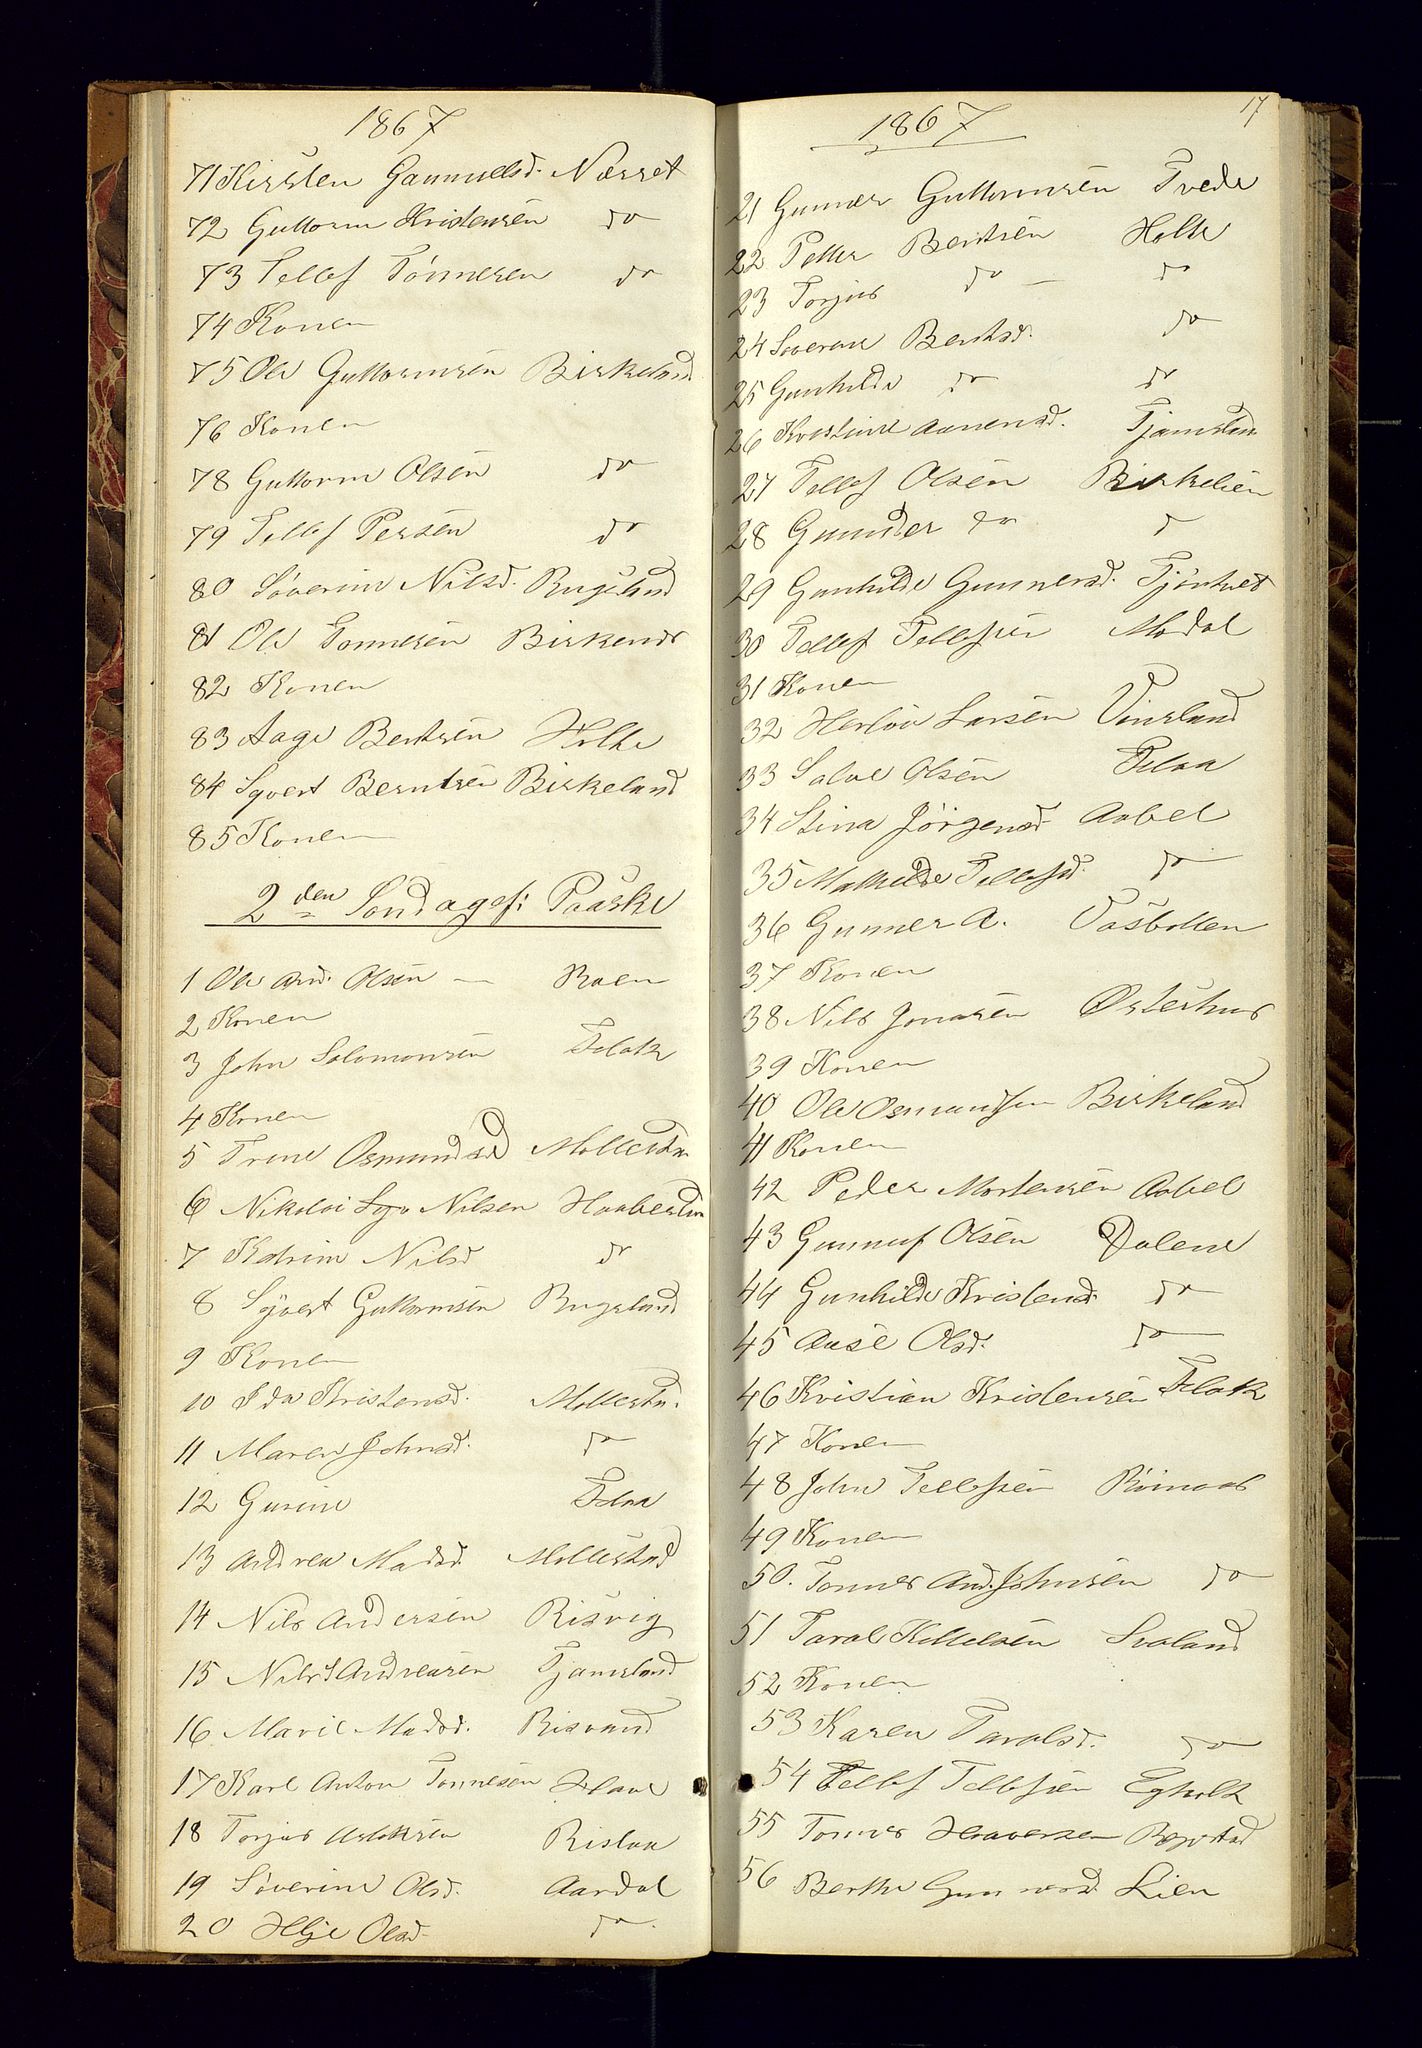 1867
71 Kirsten Gunnulsd. Nærset
72 Guttorm Kristensen do
73 Tellef Tønnesen do
74 Konen
75 Ole Guttormsen Birkeland
76 Konen
78 Guttorm Olsen do
79 Tellef Persen do
80 Søverine Nilsd. Rugsland
81 Ole Tønnesen Birkenes
82 Konen
83 Aage Bentsen Holte
84 Syvert Berntsen Birkeland
85 Konen
2den Søndag ef: Paaske
1 Ole And. Olsen — Roen
2 Konen
3 John Salomonsen Flak
4 Konen
5 Trine Osmundsd Mollestad
6 Nikolai Nilsen Haabesten
7 Katrine Nilsd do
8 Syvert Guttormsen Rugsland
9 Konen
10 Ida Kristensd. Mollestad
11 Maren Johnsd. do
12 Gurine
13 Andrea Madsd. Mollestad
14 Nils Andersen Risvig
15 Nils Andreasen Tjamsland
16 Marie Madsd. Risvand
17 Karl Anton Tønnesen
18 Torjus Aslaksen Rislaa
19 Søverine Olsd. Aardal
20 Helje Olsd. do
1867
17
21 Gunner Guttormsen Tvede
22 Petter Bentsen Holte
23 Torjus do — do
24 Severine Bentsd. do
25 Gunhilde do do
26 Kristine Aanensd. Tjamsland
27 Tellef Olsen Birkelien
28 Gunder do
29 Gunhilde Gunnersd. Tjønhvet
30 Tellef Tellefsen Modal
31 Konen
32 Herlov Larsen Vinsland
33 Salve Olsen
34 Stina Jørgensd. Aabel
35 Mathilde Tellefsd. do
36 Gunner A. Vasbotten
37 Konen
38 Nils Jonasen Østerhus
39 Konen
40 Ole Osmundsen Birkeland
41 Konen
42 Peder Mortensen Aabel
43 Gunnuf Olsen Dalene
44 Gunhilde Kristensd. do
45 Anse Olsd. do
46 Kristian Kristensen Flak
47 Konen
48 John Tellefsen
49 Konen
50. Tønnes And. Johnsen do
51 Taral Kittelsen Svaland
52 Konen
53 Karen Taralsd. do
54 Tellef Tellefsen Egholt
55 Tønnes
56 Berthe Gunnersd. Lien